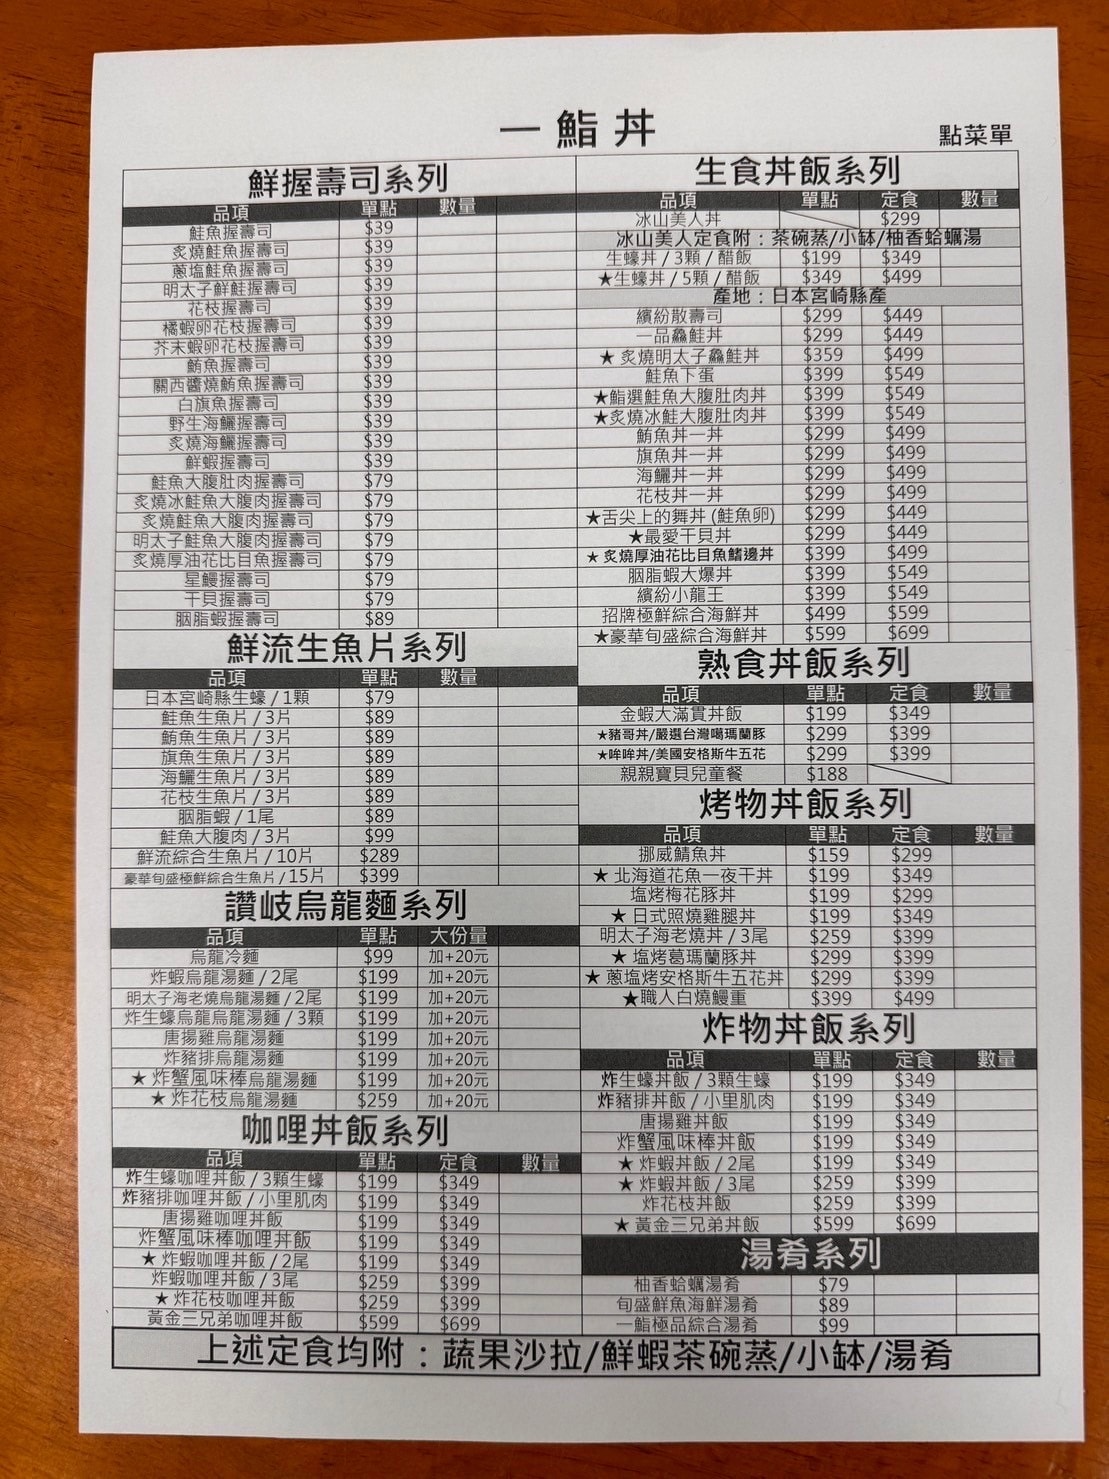 一鮨丼
點菜單
鮮握壽司系列
品項 單點 數量
鮭魚握壽司 $39
炙燒鮭魚握壽司 $39
蔥塩鮭魚握壽司 $39
明太子鮮鮭握壽司 $39
花枝握壽司 $39
橘蝦卵花枝握壽司 $39
芥末蝦卵花枝握壽司 $39
鮪魚握壽司 $39
關西醬燒鮪魚握壽司 $39
白旗魚握壽司 $39
野生海鱺握壽司 $39
炙燒海鱺握壽司 $39
鮮蝦握壽司 $39
鮭魚大腹肚肉握壽司 $79
炙燒冰鮭魚大腹肉握壽司 $79
炙燒鮭魚大腹肉握壽司 $79
明太子鮭魚大腹肉握壽司 $79
炙燒厚油花比目魚握壽司 $79
星鰻握壽司 $79
干貝握壽司 $79
胭脂蝦握壽司 $89
鮮流生魚片系列
品項 單點 數量
日本宮崎縣生蠔 / 1顆 $79
鮭魚生魚片 / 3片 $89
鮪魚生魚片 / 3片 $89
旗魚生魚片 / 3片 $89
海鱺生魚片 / 3片 $89
花枝生魚片 / 3片 $89
胭脂蝦 / 1尾 $89
鮭魚大腹肉 / 3片 $99
鮮流綜合生魚片 / 10片 $289
豪華旬盛極鮮綜合生魚片 / 15片 $399
讚岐烏龍麵系列
品項 單點 大份量
烏龍冷麵 $99 加+20元
炸蝦烏龍湯麵 / 2尾 $199 加+20元
明太子海老燒烏龍湯麵 / 2尾 $199 加+20元
炸生蠔烏龍烏龍湯麵 / 3顆 $199 加+20元
唐揚雞烏龍湯麵 $199 加+20元
炸豬排烏龍湯麵 $199 加+20元
★ 炸蟹風味棒烏龍湯麵 $199 加+20元
★ 炸花枝烏龍湯麵 $259 加+20元
咖哩丼飯系列
品項 單點 定食 數量
炸生蠔咖哩丼飯 / 3顆生蠔 $199 $349
炸豬排咖哩丼飯 / 小里肌肉 $199 $349
唐揚雞咖哩丼飯 $199 $349
炸蟹風味棒咖哩丼飯 $199 $349
★ 炸蝦咖哩丼飯 / 2尾 $199 $349
炸蝦咖哩丼飯 / 3尾 $259 $399
★ 炸花枝咖哩丼飯 $259 $399
黃金三兄弟咖哩丼飯 $599 $699
生食丼飯系列
品項 單點 定食 數量
冰山美人丼 $299
冰山美人定食附：茶碗蒸/小缽/柚香蛤蠣湯
生蠔丼 / 3顆 / 醋飯 $199 $349
★生蠔丼 / 5顆 / 醋飯 $349 $499
產地：日本宮崎縣產
繽紛散壽司 $299 $449
一品鱻鮭丼 $299 $449
★ 炙燒明太子鱻鮭丼 $359 $499
鮭魚下蛋 $399 $549
★鮨選鮭魚大腹肚肉丼 $399 $549
★炙燒冰鮭大腹肚肉丼 $399 $549
鮪魚丼一丼 $299 $499
旗魚丼一丼 $299 $499
海鱺丼一丼 $299 $499
花枝丼一丼 $299 $499
★舌尖上的舞丼 (鮭魚卵) $299 $449
★最愛干貝丼 $299 $449
★ 炙燒厚油花比目魚鰭邊丼 $399 $499
胭脂蝦大爆丼 $399 $549
繽紛小龍王 $399 $549
招牌極鮮綜合海鮮丼 $499 $599
★豪華旬盛綜合海鮮丼 $599 $699
熟食丼飯系列
品項 單點 定食 數量
金蝦大滿貫丼飯 $199 $349
★豬哥丼/嚴選台灣噶瑪蘭豚 $299 $399
★哞哞丼/美國安格斯牛五花 $299 $399
親親寶貝兒童餐 $188
烤物丼飯系列
品項 單點 定食 數量
挪威鯖魚丼 $159 $299
★ 北海道花魚一夜干丼 $199 $349
塩烤梅花豚丼 $199 $299
★ 日式照燒雞腿丼 $199 $349
明太子海老燒丼 / 3尾 $259 $399
★ 塩烤葛瑪蘭豚丼 $299 $399
★ 蔥塩烤安格斯牛五花丼 $299 $399
★職人白燒鰻重 $399 $499
炸物丼飯系列
品項 單點 定食 數量
炸生蠔丼飯 / 3顆生蠔 $199 $349
炸豬排丼飯 / 小里肌肉 $199 $349
唐揚雞丼飯 $199 $349
炸蟹風味棒丼飯 $199 $349
★ 炸蝦丼飯 / 2尾 $199 $349
★ 炸蝦丼飯 / 3尾 $259 $399
炸花枝丼飯 $259 $399
★ 黃金三兄弟丼飯 $599 $699
湯肴系列
柚香蛤蠣湯肴 $79
旬盛鮮魚海鮮湯肴 $89
一鮨極品綜合湯肴 $99
上述定食均附：蔬果沙拉/鮮蝦茶碗蒸/小缽/湯肴